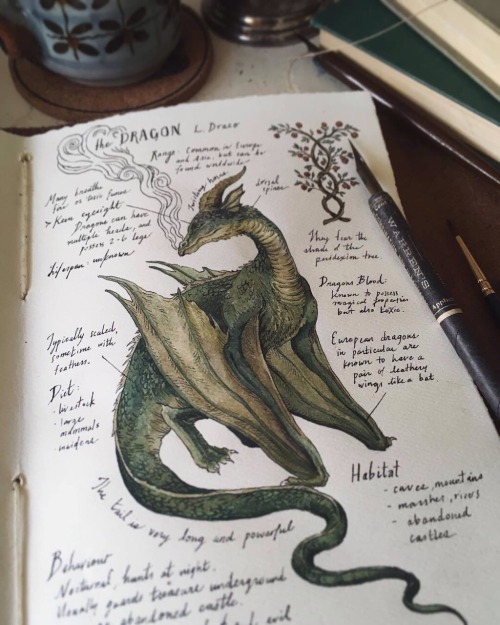 The DRAGON L. Draco
Range: Common in Europe
and Asia, but can be
found worldwide
Many breathe
fire or toxic fumes
Keen eyesight
Dragons can have
multiple heads, and
possess 2-6 legs
Lifespan - unknown
horns
dorsal
spines
They fear the
shade of the
peridexion tree
Dragons Blood:
Known to possess
magical properties
but also toxic.
Typically scaled,
sometime with
feathers.
Diet:
- livestock
- large
mammals
- maidens
European dragons
in particular are
known to have a
pair of leathery
wings like a bat
Habitat
- caves, mountains
- marshes, rivers
- abandoned
castles
The tail is very long and powerful
Behaviour
Nocturnal, hunts at night.
Usually guards treasure underground
abandoned castle.
evil